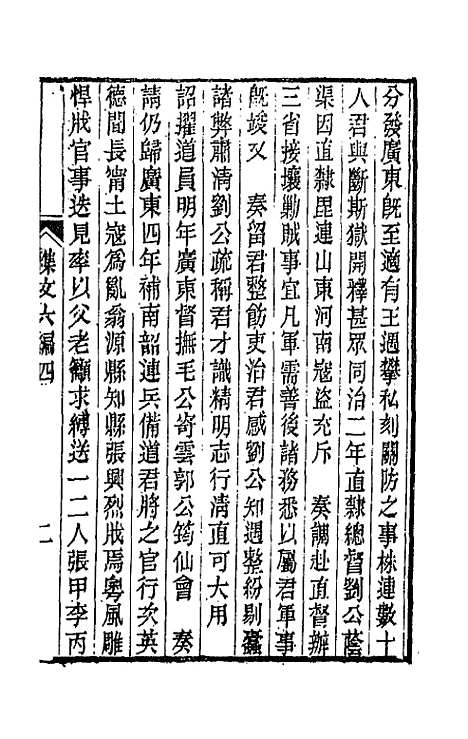 分發廣東旣至適有王遇攀私刻關防之事株連數十
人君與斷斯獄開釋甚眾同治二年直隸總督劉公蔭
渠因直隸毘連山東河南寇盜充斥　奏調赴直督辦
三省接壤勦賊事宜凡軍需善後諸務悉以屬君軍事
旣竣又　奏留君整飭吏治君感劉公知遇整紛剔蠹
諸弊肅清劉公疏稱君才識精明志行清直可大用
詔擢道員明年廣東督撫毛公寄雲郭公筠仙會　奏
請仍歸廣東四年補南韶連兵備道君將之官行次英
德聞長甯土寇為亂翁源縣知縣張興烈戕焉粵風雕
悍戕官事迭見率以父老籲求縛送一二人張甲李丙
襍文六編四
二